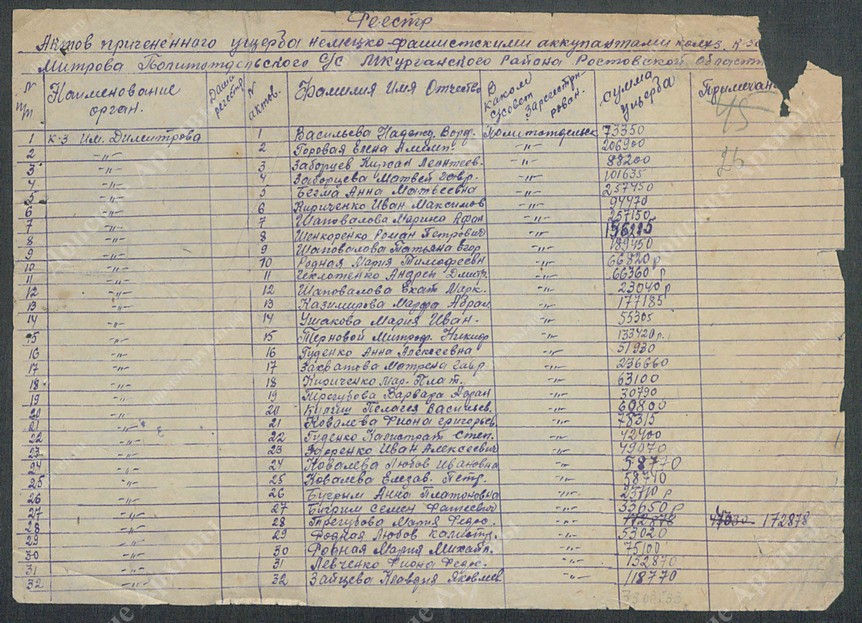 Реестр
Актов приченённого ущерба немецко-фашистскими аккупантами колхз.
Митрова Политотдельского С/С М Курганского Района Ростовской Област
№ п/п Наименование орган. Дата регистр. № актов. Фамилия Имя Отчество В каком с/совет зарегистри-рован. сумма ущерба Примечан
45
26
1 к-з им. Димитрова 1 Васильева Надежд. Политотдельск 73350
2 -"- 2 Горовая Елена -"- 206900
3 -"- 3 Заборцев Кирсан Леонтеев. -"- 88200
4 -"- 4 Заборцева Матвей Гавр. -"- 101635
5 -"- 5 Бегма Анна Матвеевна -"- 257450
6 -"- 6 Кириченко Иван Максимов -"- 94470
7 -"- 7 Шаповалова Марина Афан -"- 257150
8 -"- 8 Шенкоренко Роман Петрович -"-
9 -"- 9 Шаповалова Татьяна Егор -"- 189450
10 -"- 10 Родная Мария Тимофеевн -"- 66820 р
11 -"- 11 Андрей Дмит. -"- 66360 р
12 -"- 12 Шаповалова Екат Марк. -"- 23040 р
13 -"- 13 Казимирова Марфа Абрам -"- 177185
14 -"- 14 Ушакова Мария Иван. -"- 55305
15 -"- 15 Терновой Митроф. Никиор -"- 133420 р.
16 -"- 16 Гуденко Анна Алексеевна -"- 51930
17 -"- 17 Захватова Матрена Гавр. -"- 236660
18 -"- 18 Кириченко Мар. Плат. -"- 63100
19 -"- 19 Трегубова Варвара -"- 30790
20 -"- 20 Пелагея Васильев. -"- 60800
21 -"- 21 Ковалева Фиона Григорьев -"- 78315
22 -"- 22 Гуденко Калистрат Степ. -"- 42400
23 -"- 23 Иван Алексеевич -"- 49070
24 -"- 24 Ковалева Любов Ивановна -"- 58770
25 -"- 25 Ковалева Елизав. Петр. -"- 58740
26 -"- 26 Бугрым Анна Платоновна -"- 25110 р
27 -"- 27 Бугрим Семен -"- 33650 р
28 -"- 28 Трегубова Мария Федос. -"- 172878 172878
29 -"- 29 Родная Любов Калистр. -"- 53020
30 -"- 30 Родная Мария Михайл. -"- 75100
31 -"- 31 Левченко Фиона Федос. -"- 152870
32 -"- 32 Зайцева Клавдия Яковлев -"- 118770